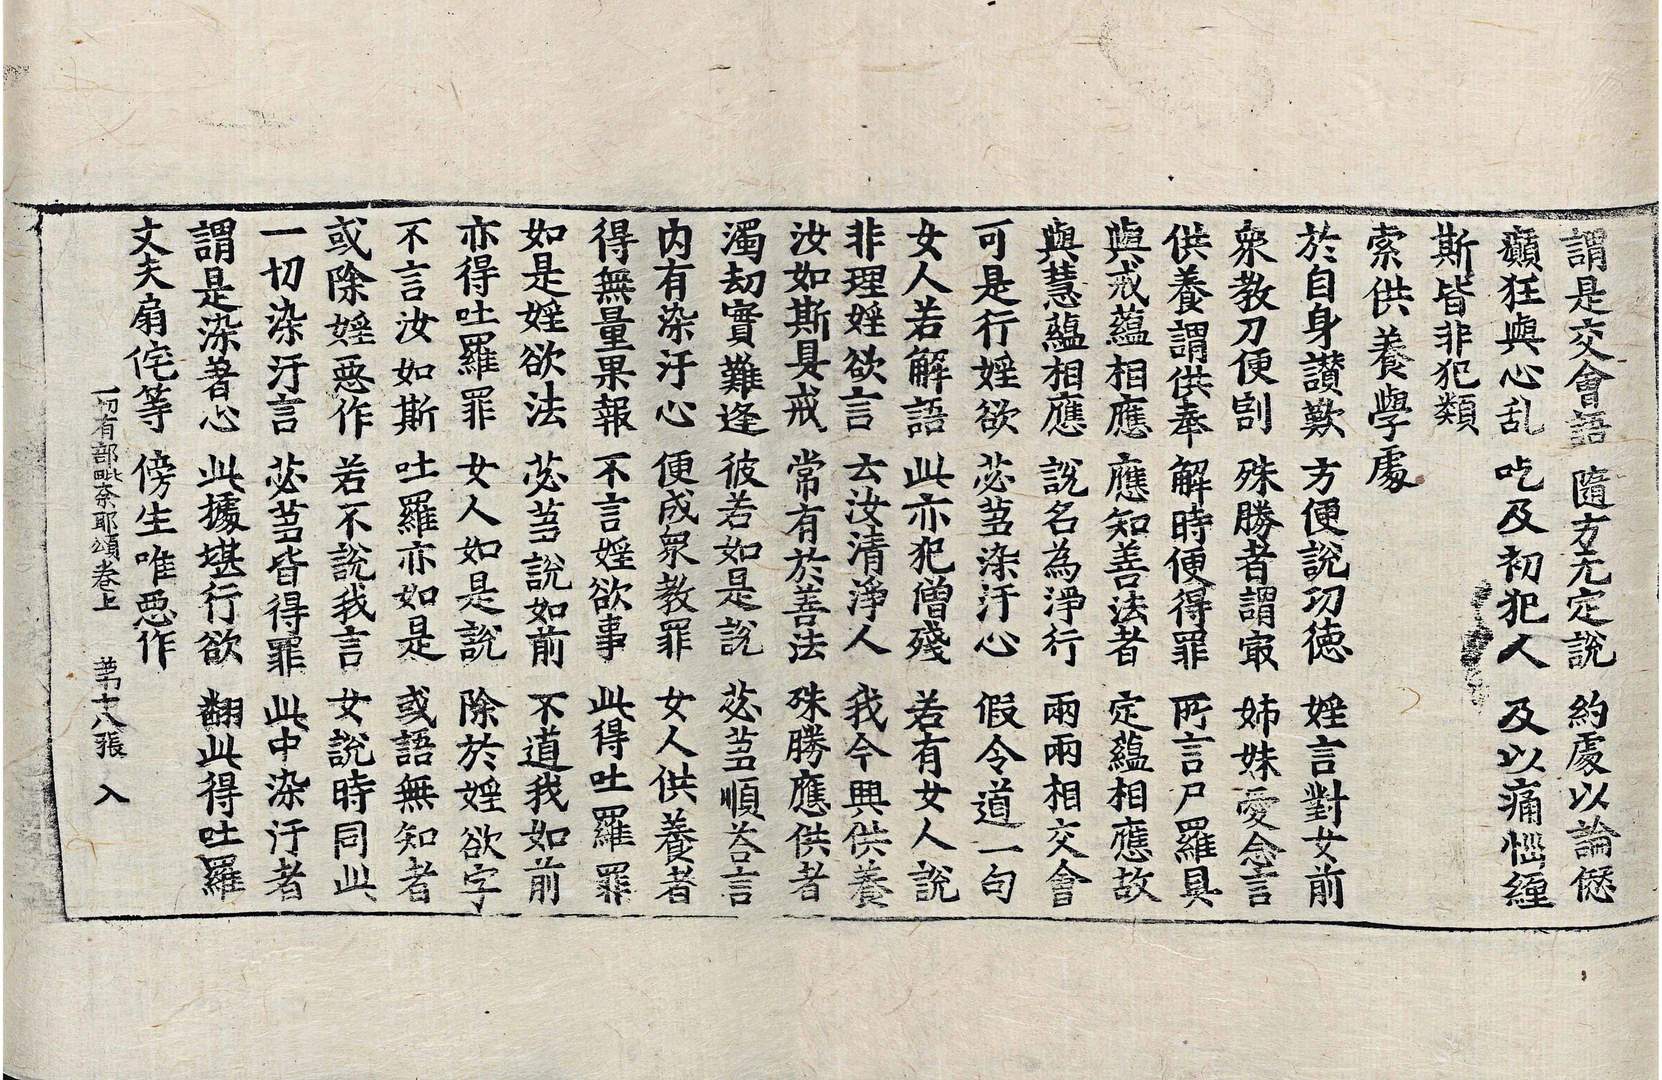 謂是交會語　隨方无定說　約處以論愆
癲狂與心乱　吃及初犯人　及以痛惱纏
斯皆非犯類
索供養學處
於自身讃歎　方便說功徳　婬言對女前
衆教刀便割　殊勝者謂㝡　姉妹愛念言
供養謂供奉　解時便得罪　所言尸羅具
與戒蘊相應　應知善法者　定蘊相應故
與慧蘊相應　說名為淨行　兩兩相交會
可是行婬欲　苾芻染汙心　假令道一句
女人若解語　此亦犯僧殘　若有女人說
非理婬欲言　去汝清淨人　我今興供養
汝如斯具戒　常有於善法　殊勝應供者
濁劫實難逢　彼若如是說　苾芻順荅言
内有染汙心　便成衆教罪　女人供養者
得無量果報　不言婬欲事　此得吐羅罪
如是婬欲法　苾芻說如前　不道我如前
亦得吐羅罪　女人如是說　除於婬欲字
不言汝如斯　吐羅亦如是　或語無知者
或除婬惡作　若不說我言　女說時同此
一切染汙言　苾芻皆得罪　此中染汙者
謂是染著心　此據堪行欲　翻此得吐羅
丈夫扇侘等　傍生唯惡作
一切有部毗奈耶頌卷上　第十八張　入